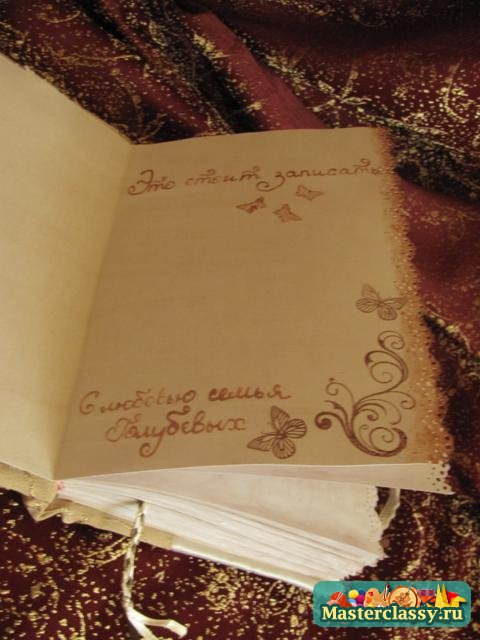 Это стоит записать
С любовью семья
Голубевых
Masterclassy.ru